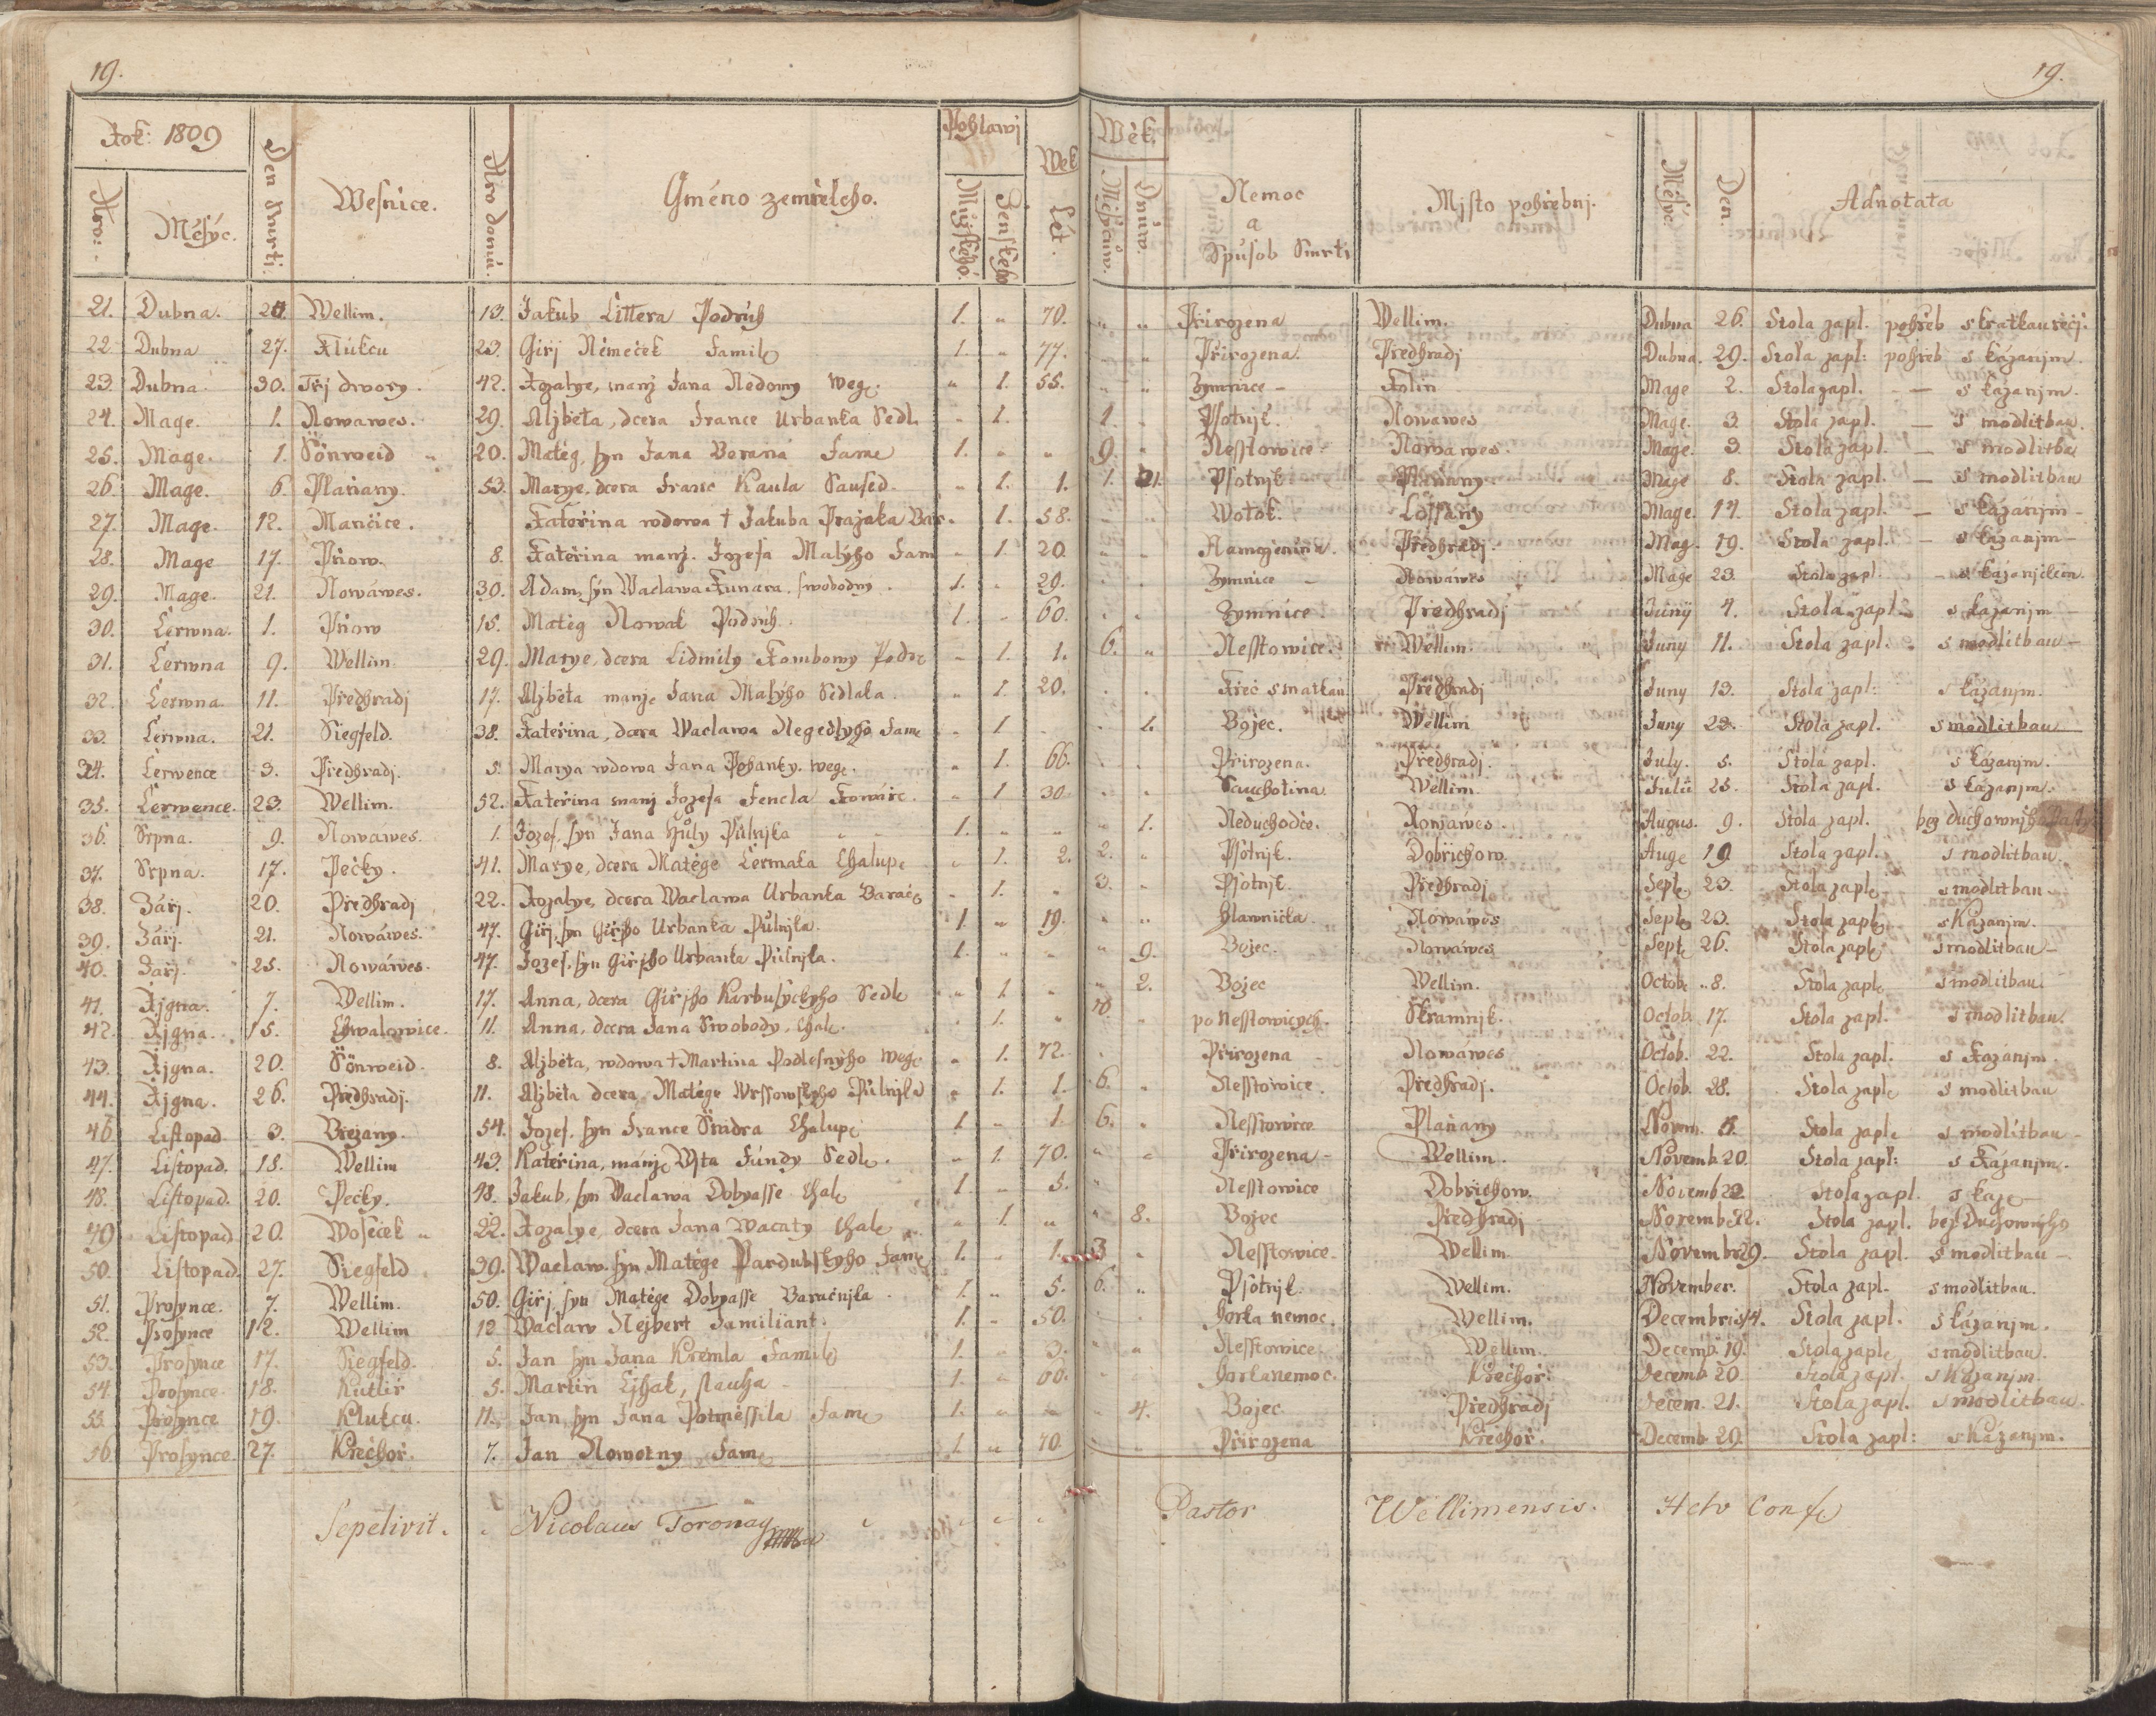 19. 19.
Rok: 1809 Den Smrti. Wesnice. Nro domu. Gméno zemřelého. Pohlawj Wek Wěk. Nemoc a Spůsob Smrti Mjsto pohřebnj. Měsýc. Den. Adnotata
Nro: Měsýc. Mužského. Ženského Lét. Měsýců. Dnůw.
21. Dubna. Wellim. 13. Jakub Littera Podruh 1. " 70. " " Přirozena Wellim. Dubna 26. Stola zapl. pohřeb s kratkau řečj.
22. Dubna 27. Klukcu 23. Giřj Němeček Famil 1. " 77. " " Přirozena. Předhradj Dubna. 29. Stola zapl: pohřeb s kázanjm.
23. Dubna. 30. Třj dwory. 42. Rozalye, manž Jana Nedomy weg. " 1. 55. " " Zymnice - Kolin Mage 2. Stola zapl. — s kázanjm.
24. Mage. 1. Nowawes. 29. Aljběta, dcera France Urbanka Sedl. " 1. 1. Psotnjk. Nowawes Mage. 3. Stola zapl. — s modlitbau.
25. Mage. 1. Sönweid " 20. Matěg, syn Jana Berana Fame 1. " " 9. " Nesstowice Nowawes. Mage. 3. Stola zapl. — s modlitba
26. Mage. 6. Plaňany. 53. Marye, dcera Franc Kaula Saused. " 1. 1. 1. 21. Psotnjk Plaňany Mage 8. Stola zapl. — s modlitbau
27. Mage. 12. Mančice. Kateřina wdowa † Jakuba Pražaka Bar. 1. 58. Wotok. Lossany Mage. 14. Stola zapl. — s kázánjm -
28. Mage 17. Pňow. 8. Kateřina manž. Jozefa Malýho Fam " 1. 20 Namoženina. Předhradj. Mag. 19. Stola zapl. - s kázanjm -
29. Mage. 21. Nowáwes. 30. Adam, syn Waclawa Kunara. swobodný. 1. " 29. Zymnice - Nowáwes Mage 23. Stola zapl.
30. Čerwna. 1. Pňow 15. Matěg Nowak Podruh. 1. " 60. Zymnice. Předhradj Juny 4. Stola zapl - s kázanjm -
31. Čerwna 9. Wellim 29. Marye, dcera Lidmily Kombowy Podr " 1. 1. 6. " Nesstowice. Wellim. Juny 11. Stola zapl. s modlitbau -
32. Čerwna 11. Předhradj 17. Aljběta manž. Jana Malýho Sedlaka. " 1. 20. Předhradj Juny 13. Stola zapl: s kázanjm.
33. Čerwna. 21. Siegfeld. 38. Kateřina, dcera Waclawa Negedlyho Fam " 1 1. Bojec. Wellim Juny 23. Stola zapl. s modlitbau
34. Čerwence 3. Předhradj. 5. Marya wdowa Jana Pohanky. weg. " 1. 66. Přirozena. Předhradj. July. 5. Stola zapl. s kázanjm.
35. Čerwence. 23. Wellim. 52. Kateřina manž Jozefa Fencla Kowáře. " 1 30. Sauchotina Wellim. Julii 25. Stola zapl. s kázanjm.
36. Srpna. 9. Nowáwes. 1. Jozef, syn Jana Hůly Půlnjka 1. " " " 1. Neduchodče. Nowáwes. Augus. 9. Stola zapl. bez duchownjho
37. Srpna. 17. Pečky. 41. Marye, dcera Matěge Čermaka Chalupe " 1. 2. 2. " Psotnjk. Dobřichow. Aug 19. Stola zapl. s modlitbau.
38. Zářj. 20. Předhradj 22. Rozalye, dcera Waclawa Urbanka Barač " 1. " 3. Psotnjk. Předhradj. Sept. 23. Stola zapl. s modlitbau -
39. Zářj. 21. Nowáwes. 47. Giřj, syn Giřjho Urbanka Půlnjka. 1 " 19. " " Hlawnička. Nowáwes Sept. 23. Stola zapl. s Kázanjm.
40. Zářj. 25. Nowáwes. 47. Jozef, syn Giřjho Urbanka Půlnjka. 1. " " " 9. Bojec. Nowáwes Sept. 26. Stola zapl. s modlitbau -
41. Řjgna. 7. Wellim. 17. Anna, dcera Giřjho Karbusyckyho Sedl " 1. " " 2. Bojec Wellim. Octob. 8. Stola zapl. s modlitbau
42. Řjgna. 15. Chwalowice. 11. Anna, dcera Jana Swobody, Chal. " 1. " 10 " po Nesstowicych. Skramnjk. Octob. 17. Stola zapl. s modlitbau.
43. Řjgna. 20. Sönweid. 8. Aljběta, wdowa † Martina Podlesnýho weg. " 1. 72. Přirozena - Nowáwes Octob. 22. Stola zapl. s Kázánjm.
44. Řjgna. 26. Předhradj. 11. Aljběta dcera Matěge Wrssowskyho Půlnjka " 1. 1. 6. Nesstowice. Předhradj. Octob. 28. Stola zapl. s modlitbau
46. Listopad. 3. Březany. 54. Jozef, syn France Šnidra Chalup. 1. " 1. 6. Nesstowice. Plaňany Novem. 5. Stola zapl. s modlitbau -
47. Listopad. 18. Wellim 43. Kateřina, manž. Wjta Fundy Sedl. " 1. 70. " " Přirozena - Wellim. Novemb. 20. Stola zapl: s Kázanjm.
48. Listopad. 20. Pečky. 48. Jakub, syn Waclawa Dobyasse Chal 1. " 5. " Nesstowice Dobřichow. Novemb 22. Stola zapl. s Káz -
49 Listopad. 20. Woseček " 22. Rozalye, dcera Jana Wacaty Chal. " 1. " " 8. Bojec Předhradj Novemb 22. Stola zapl. bez Duchownjho
50. Listopad. 27. Siegfeld 39. Waclaw, syn Matěge Pardubskyho Fam. 1. " 1. 3 Nesstowice. Wellim. Novembr 29. Stola zapl. s modlitbau -
51. Prosynce. 7. Wellim. 50. Giřj syn Matěge Dobyasse Baračnjka. 1. " 5. 6. " Psotnjk. Wellim. November. Stola zapl. s modlitbau.
52. Prosynce 12. Wellim 12 Waclaw Nejbert Familiant. 1. " 50. Horka nemoc. Wellim. Decembris 14. Stola zapl. s kázanjm.
53. Prosynce 17. Siegfeld. 5. Jan syn Jana Kremla Famil. 1. " 3. " " Nesstowice. Wellim. Decemb. 19. Stola zapl. s modlitbau.
54. Prosynce 18. Kutliř 5. Martin 1. " 60. " Horka nemoc. Křechoř. Decemb 20. Stola zapl. s Kázanjm.
55. Prosynce 19. Klukcu. 11. Jan, syn Jana Potměssila Fam. 1. " " " 4. Bojec Předhradj Decem. 21. Stola zapl. s modlitbau.
56. Prosynce. 27. Křechoř. 7. Jan Nowotny Fam. 1. " 70. Přirozena Křechoř. Decemb 29. Stola zapl: s Kázanjm.
Sepelivit. Nicolaus Toronay Pastor Wellimensis. Helv Conf